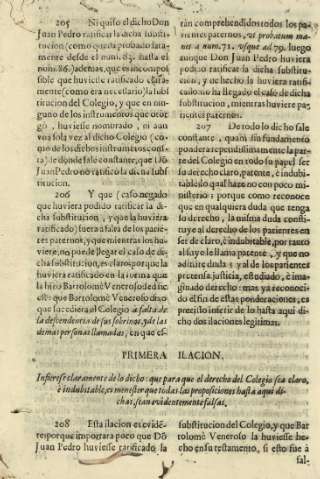 205 Ni quiso el dicho Don
Juan Pedro ratificar la dicha substi-
tucion (como queda probado lata-
mente desde el num. 83. hasta el
num. 86.) ademas, que es impos-
sible que huviesse ratificado clara-
mente (como era necessario) la subs-
titucion del Colegio, y que en nin-
guno de los instrumentos que otor-
gò, huviesse nombrado, ni aun
una sola vez al dicho Colegio (co-
mo de los dichos instrumentos cons-
ta) de donde sale constante, que Dõ
Juan Pedro no ratificò la dicha subs-
titucion.
206 Y que (caso negado
que huviera podido ratificar la di-
cha substitucion, y que la huviera
ratificado) fuera a falta de los parie-
tes paternos, y que mientras los hu-
viere, no puede llegar el caso de di-
cha substitucion, es claro; porque la
huviera ratificado en la forma que
la hizo Bartolomè Veneroso: dize
est: que Bartolomè Veneroso dixo
que sucediera el Colegio à falta de
la descendencia de sus sobrinos, y de las
demas personas llamadas, en que es-
tàn comprehendidos todos los pa-
rientes paternos, ut probatum ma-
net à num. 71. usque ad 79. luego
aunque Don Juan Pedro huviera
podido ratificar la dicha substitu-
cion, y de hecho la huviera rati-
ficado no ha llegado el caso de dicha
substitucion, mientras huviere pa-
rientes paternos.
207 De todo lo dicho sale
constante, quan sin fundamento
pondera repetidissimamente la par-
te del Colegio en todo su papel ser
su derecho claro, patente, è indubi-
table; lo qual haze no con poco mi-
sterio: porque como reconoce
que en qualquiera duda que tenga
su derecho, la misma duda consti-
tuye al derecho de los parientes en
ser de claro, è indubitable, por tanto
al suyo le llama patente, y que no
admite duda y al de los parientes
pretensa justicia, estudiado, è ima-
ginado derecho: mas ya reconoci-
do el fin de estas ponderaciones, es
preciso inferir de lo hasta aqui di-
cho dos ilaciones legitimas.
PRIMERA ILACION.
Infierese claramente de lo dicho: que para que el derecho del Colegio sea claro,
è indubitable, es menester que todas las proposiciones hasta aqui di-
chas, sean evidentemente falsas.
208 Esta ilacion es evidē-
te: porque importara poco que Dõ
Juan Pedro huviesse ratificado la
substitucion del Colegio, y que Bar
tolomè Veneroso la huviesse he-
cho en su testamento, si esto fue à
fal-